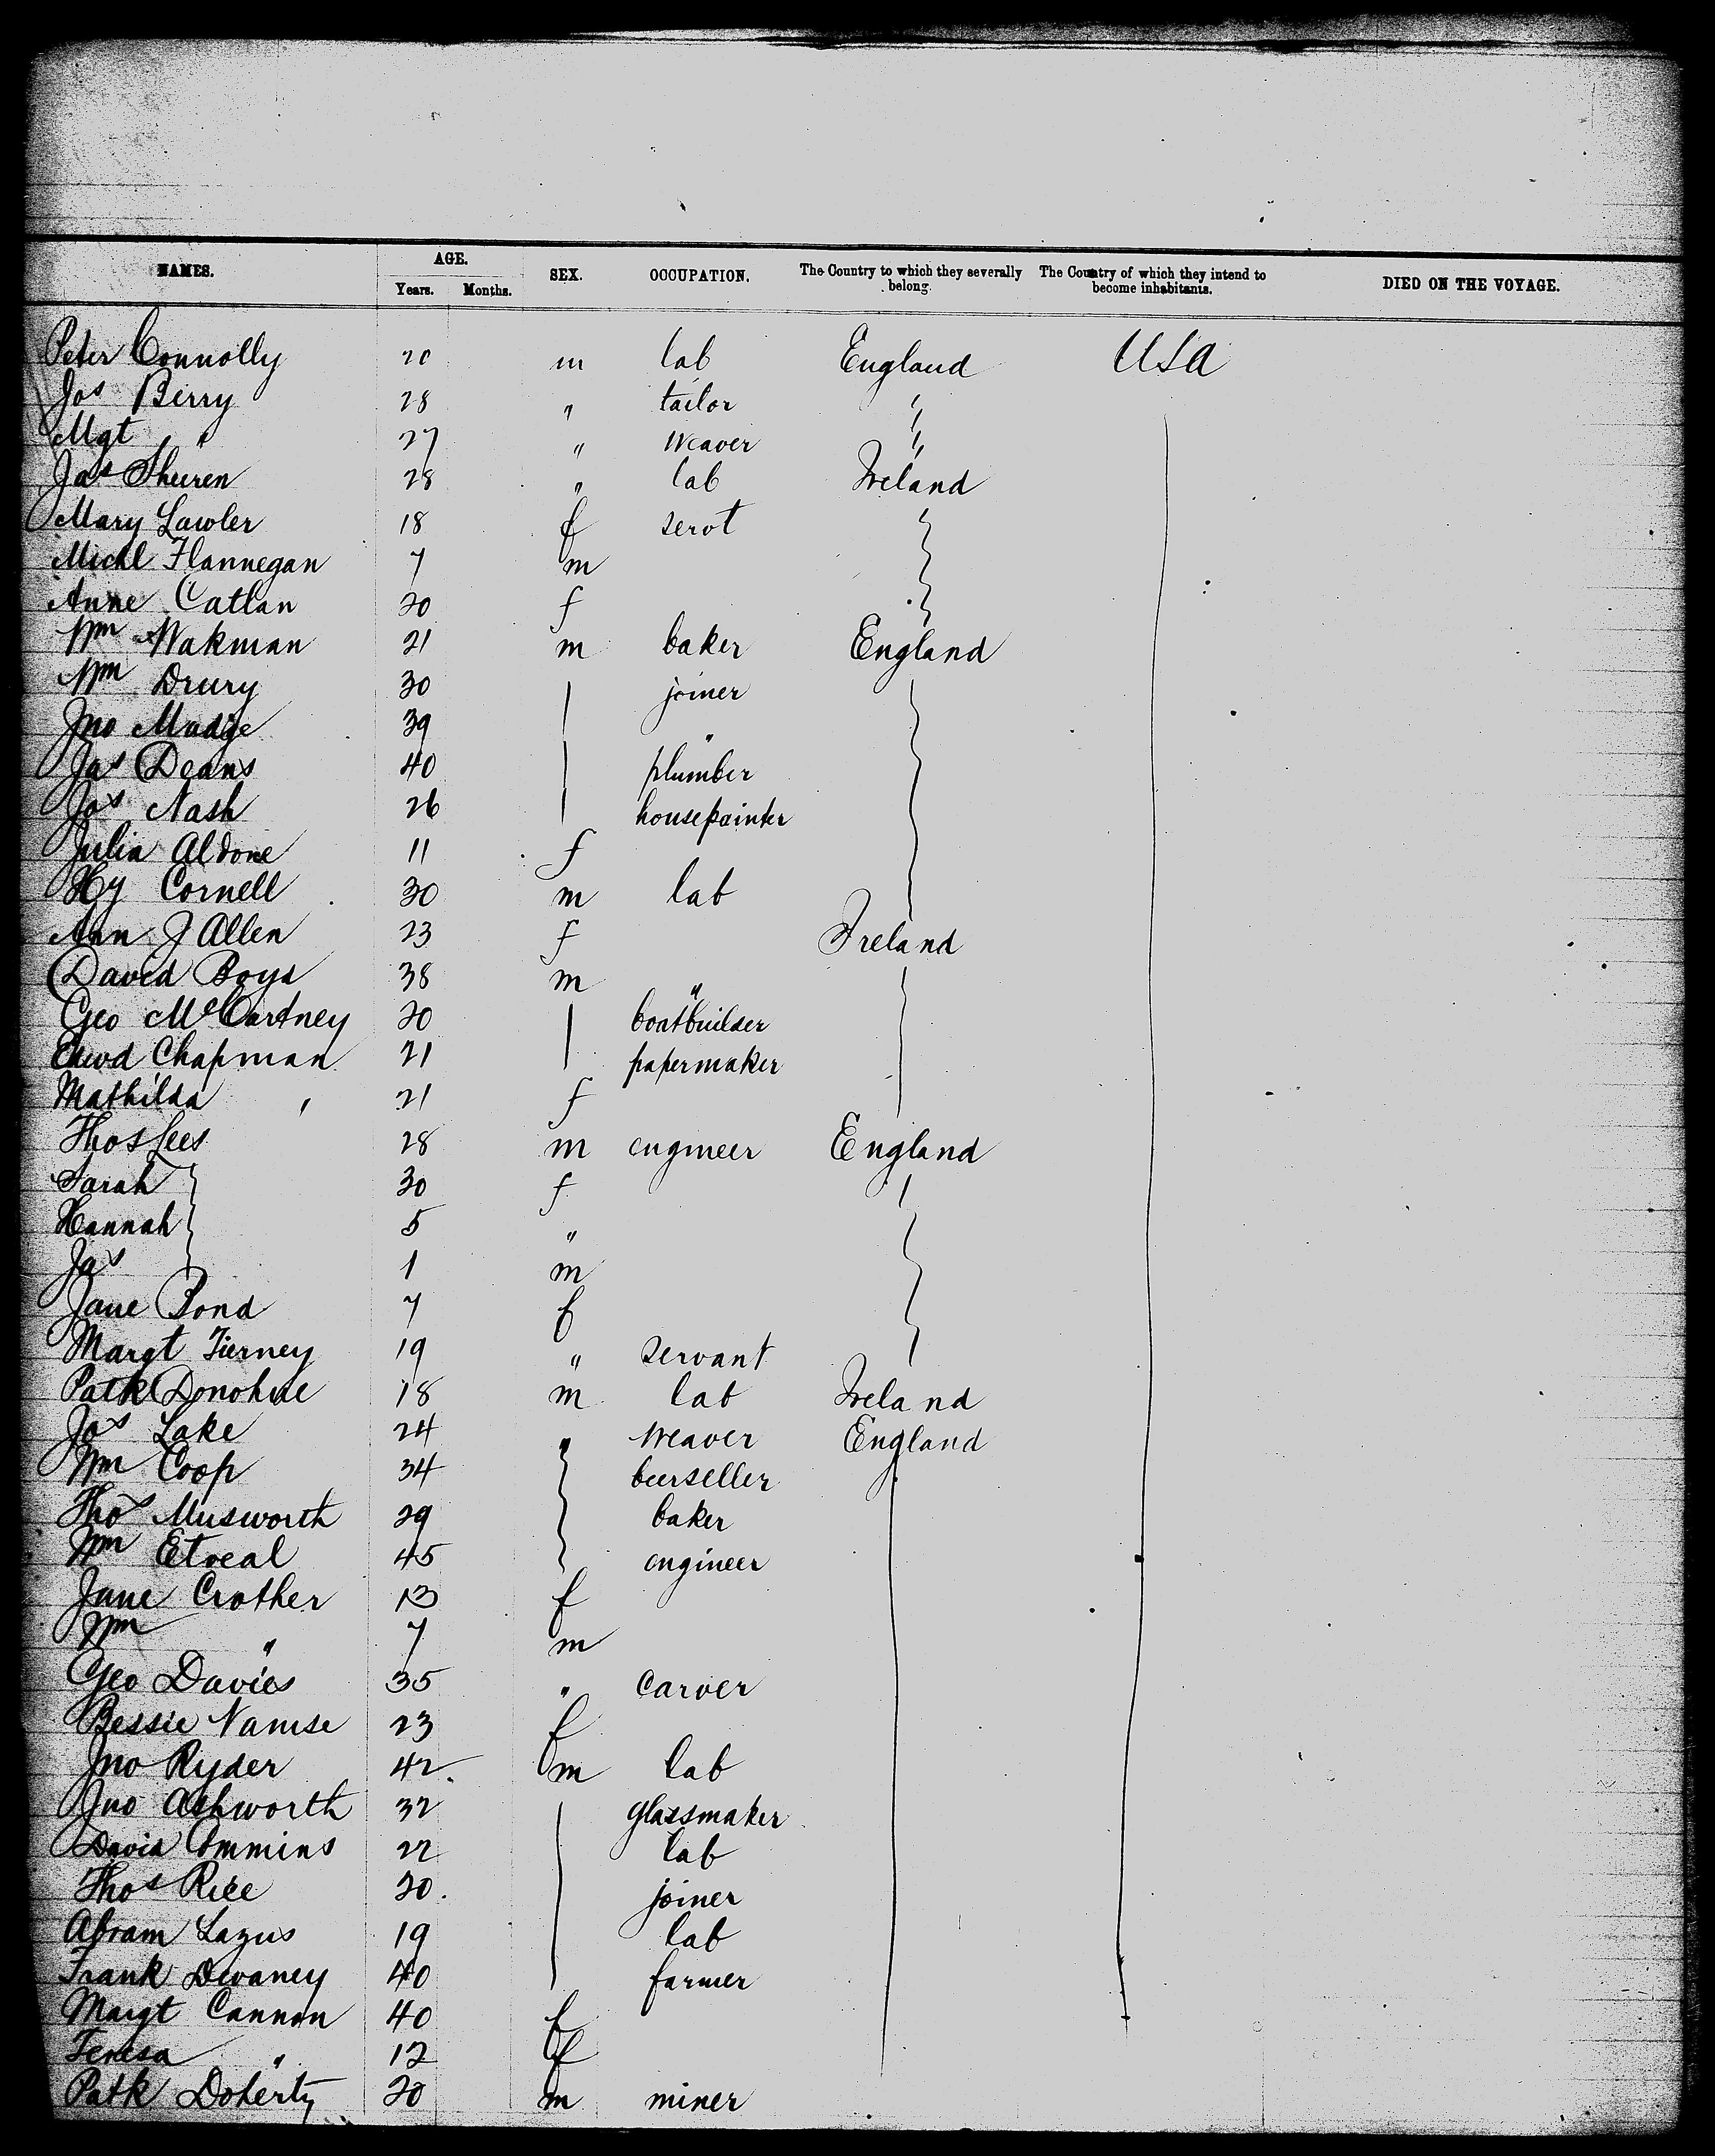 NAMES. AGE. SEX. OCCUPATION. The Country to which they severally belong. The Country of which they intend to become inhabitants. DIED ON THE VOYAGE.
Years. Months.
Peter Connolly 20 m lab England USA
Jos Berry 28 " tailor "
Mgt " 27 " weaver "
Jas Sheeren 28 " lab Ireland
Mary Lawler 18 f servt
Michl Flannegan 7 m
Anne Catlan 20 f
Wm Wakman 21 m baker England
Wm Drury 30 joiner
Jno Mudge 39 "
Jas Deans 40 plumber
Jos Nash 26 housepainter
Julia Aldone 11 f
Hy Cornell 30 m lab
Ann J Allen 23 f Ireland
David Boyd 38 m "
Geo McCartney 20 boatbuilder
Edwd Chapman 21 papermaker
Mathilda " 21 f
Thos Lees 28 m engineer England
Sarah 30 f
Hannah 5 "
Jas 1 m
Jane Bond 7 f
Margt Tierney 19 " servant
Patk Donohue 18 m lab Ireland
Jos Lake 24 " weaver England
Wm Coop 34 beerseller
Thos Musworth 29 baker
Wm Etveal 45 engineer
Jane Crother 13 f
Wm " 7 m
Geo Davies 35 " carver
Bessie 23 f
Jno Ryder 42 m lab
Jno Ashworth 32 glassmaker
David Commins 22 lab
Thos Rice 20 joiner
Abram Lazus 19 lab
Frank Devaney 40 farmer
Margt Cannon 40 f
Teresa " 12 f
Patk Doherty 20 m miner